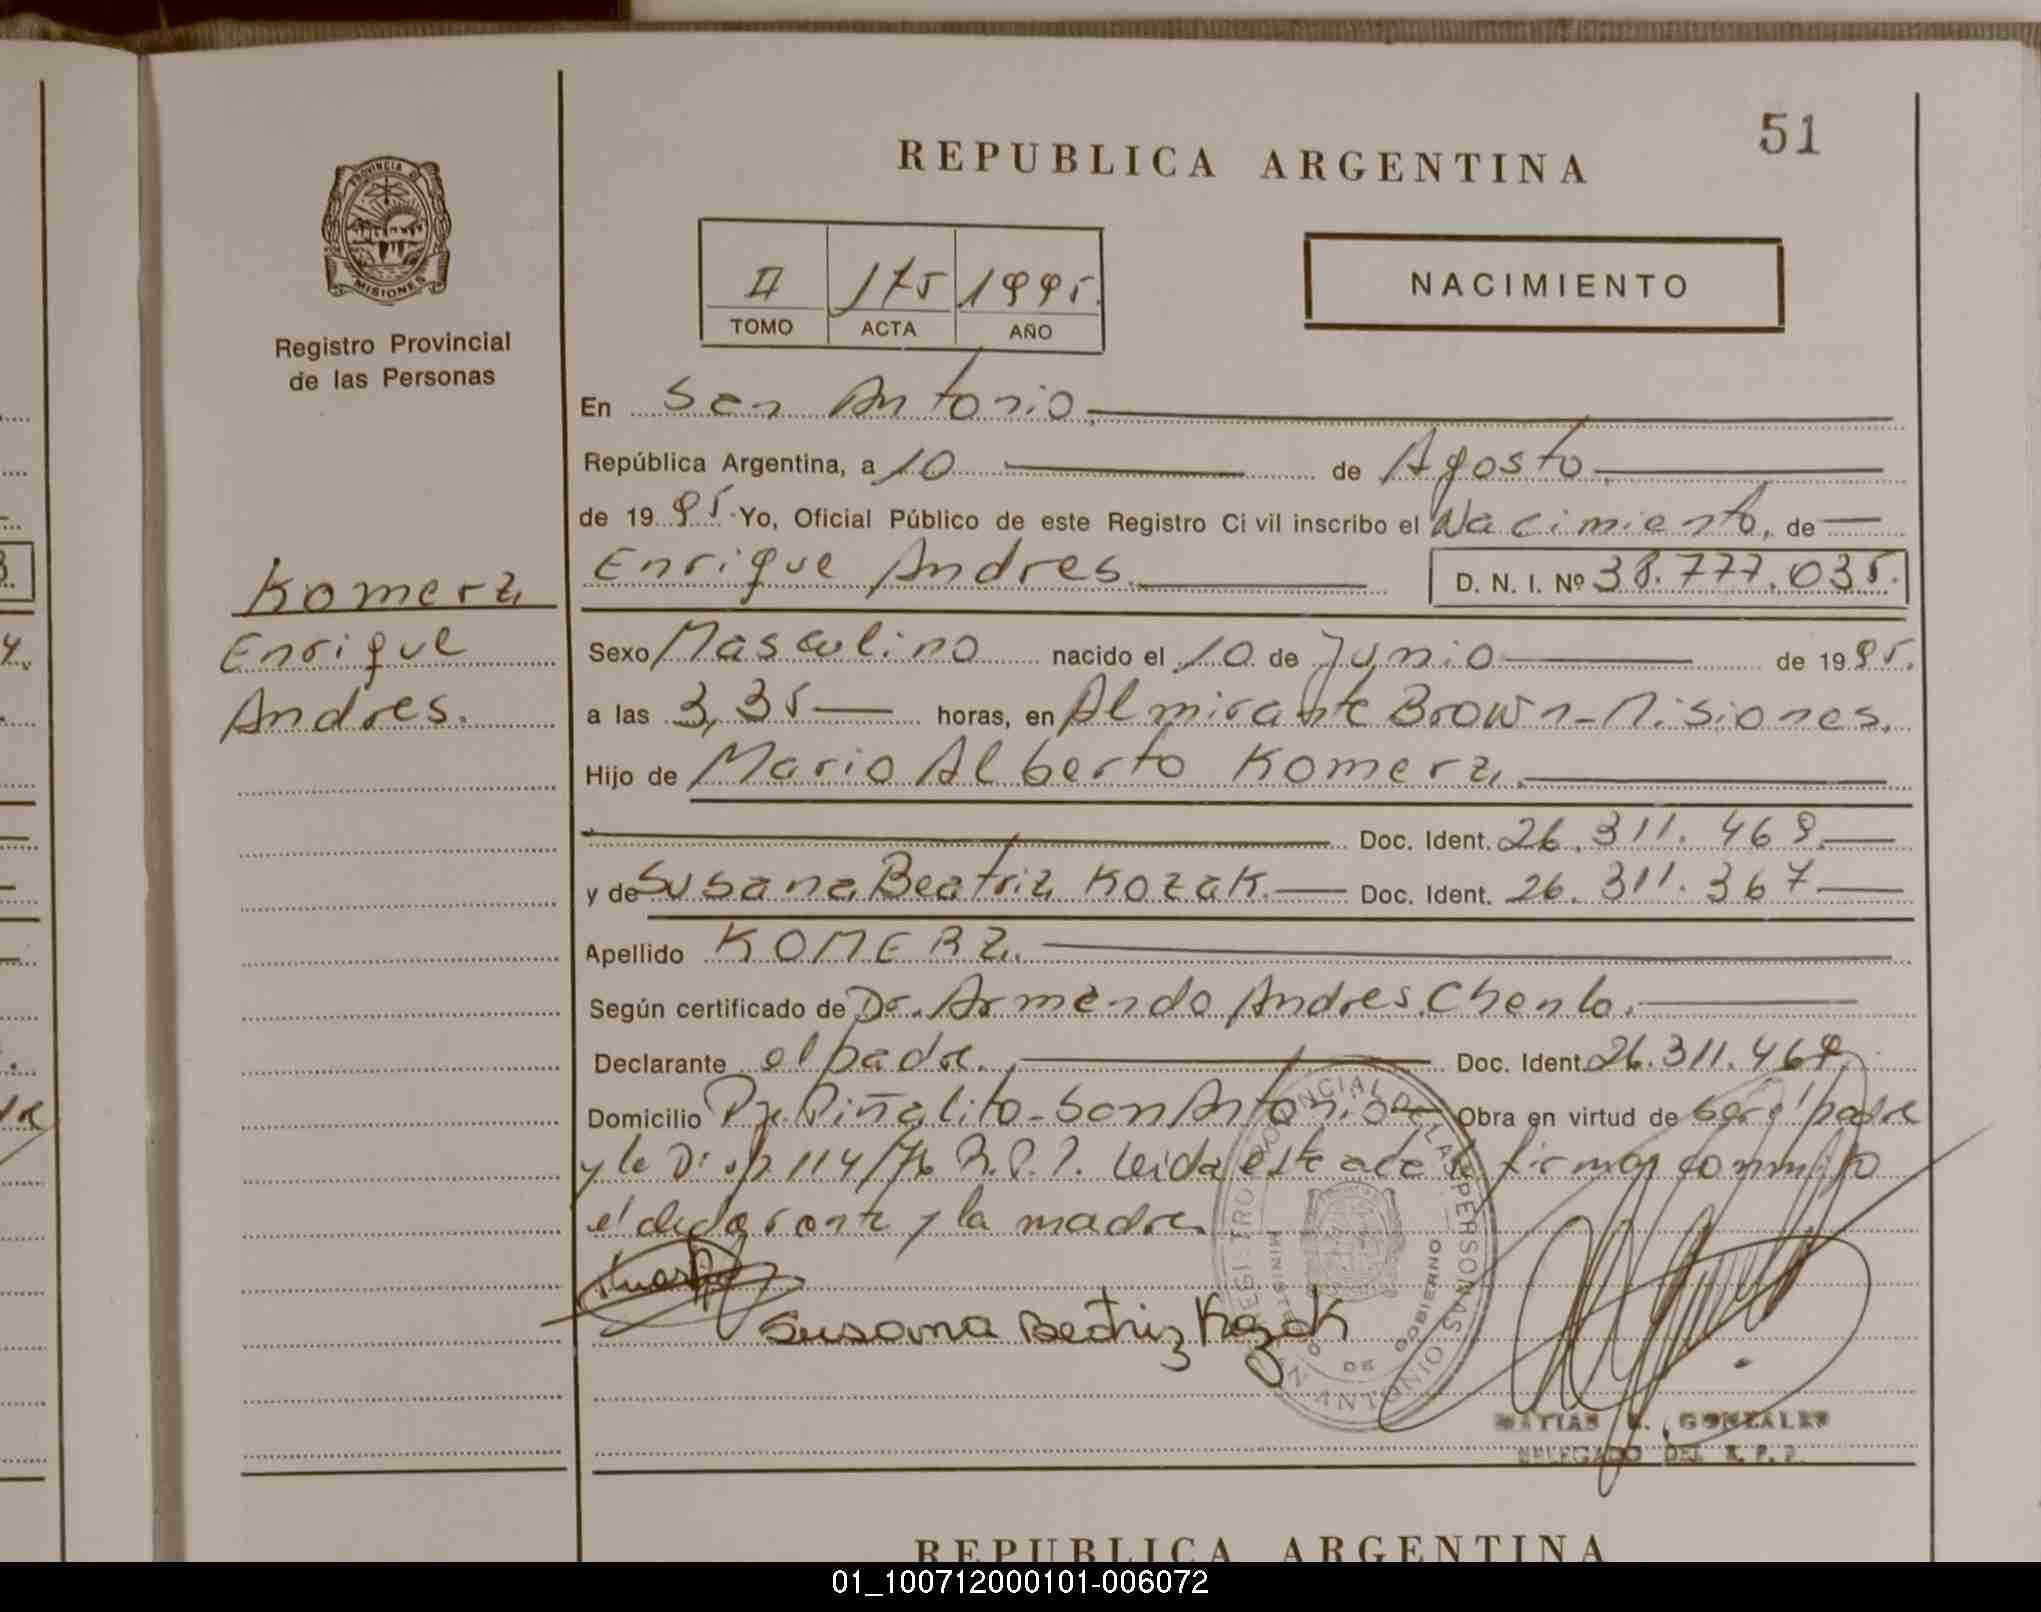 51
REPUBLICA ARGENTINA
PROVINCIA DE
MISIONES
Registro Provincial
de las Personas
II 175 1995.
TOMO ACTA AÑO
NACIMIENTO
En San Antonio
República Argentina, a 10 de Agosto
de 1995 Yo, Oficial Público de este Registro Civil inscribo el Nacimiento, de
Enrique Andres. D. N. I. Nº 38.777.035.
Komerz
Enrique
Andres.
Sexo Masculino nacido el 10 de Junio de 1995.
a las 3,35 horas, en Almirante Brown-Misiones.
Hijo de Mario Alberto Komerz.
Doc. Ident. 26.311.469.
y de Susana Beatriz Kozak. Doc. Ident. 26.311.367
Apellido KOMERZ.
Según certificado de Dr. Armando Andres Chenlo.
Declarante el padre. Doc. Ident. 26.311.469.
Domicilio Pje. Piñalito-San Antonio Obra en virtud de ser el padre
y la Disp 114/76 R.P.P. leida este acta firman conmigo
el declarante y la madre.
Susana Beatriz Kozak
REGISTRO PROVINCIAL DE LAS PERSONAS
MINISTERIO DE GOBIERNO
SAN ANTONIO
MATIAS GONZALES
DELEGADO DEL R.P.P.
REPUBLICA ARGENTINA
01_100712000101-006072